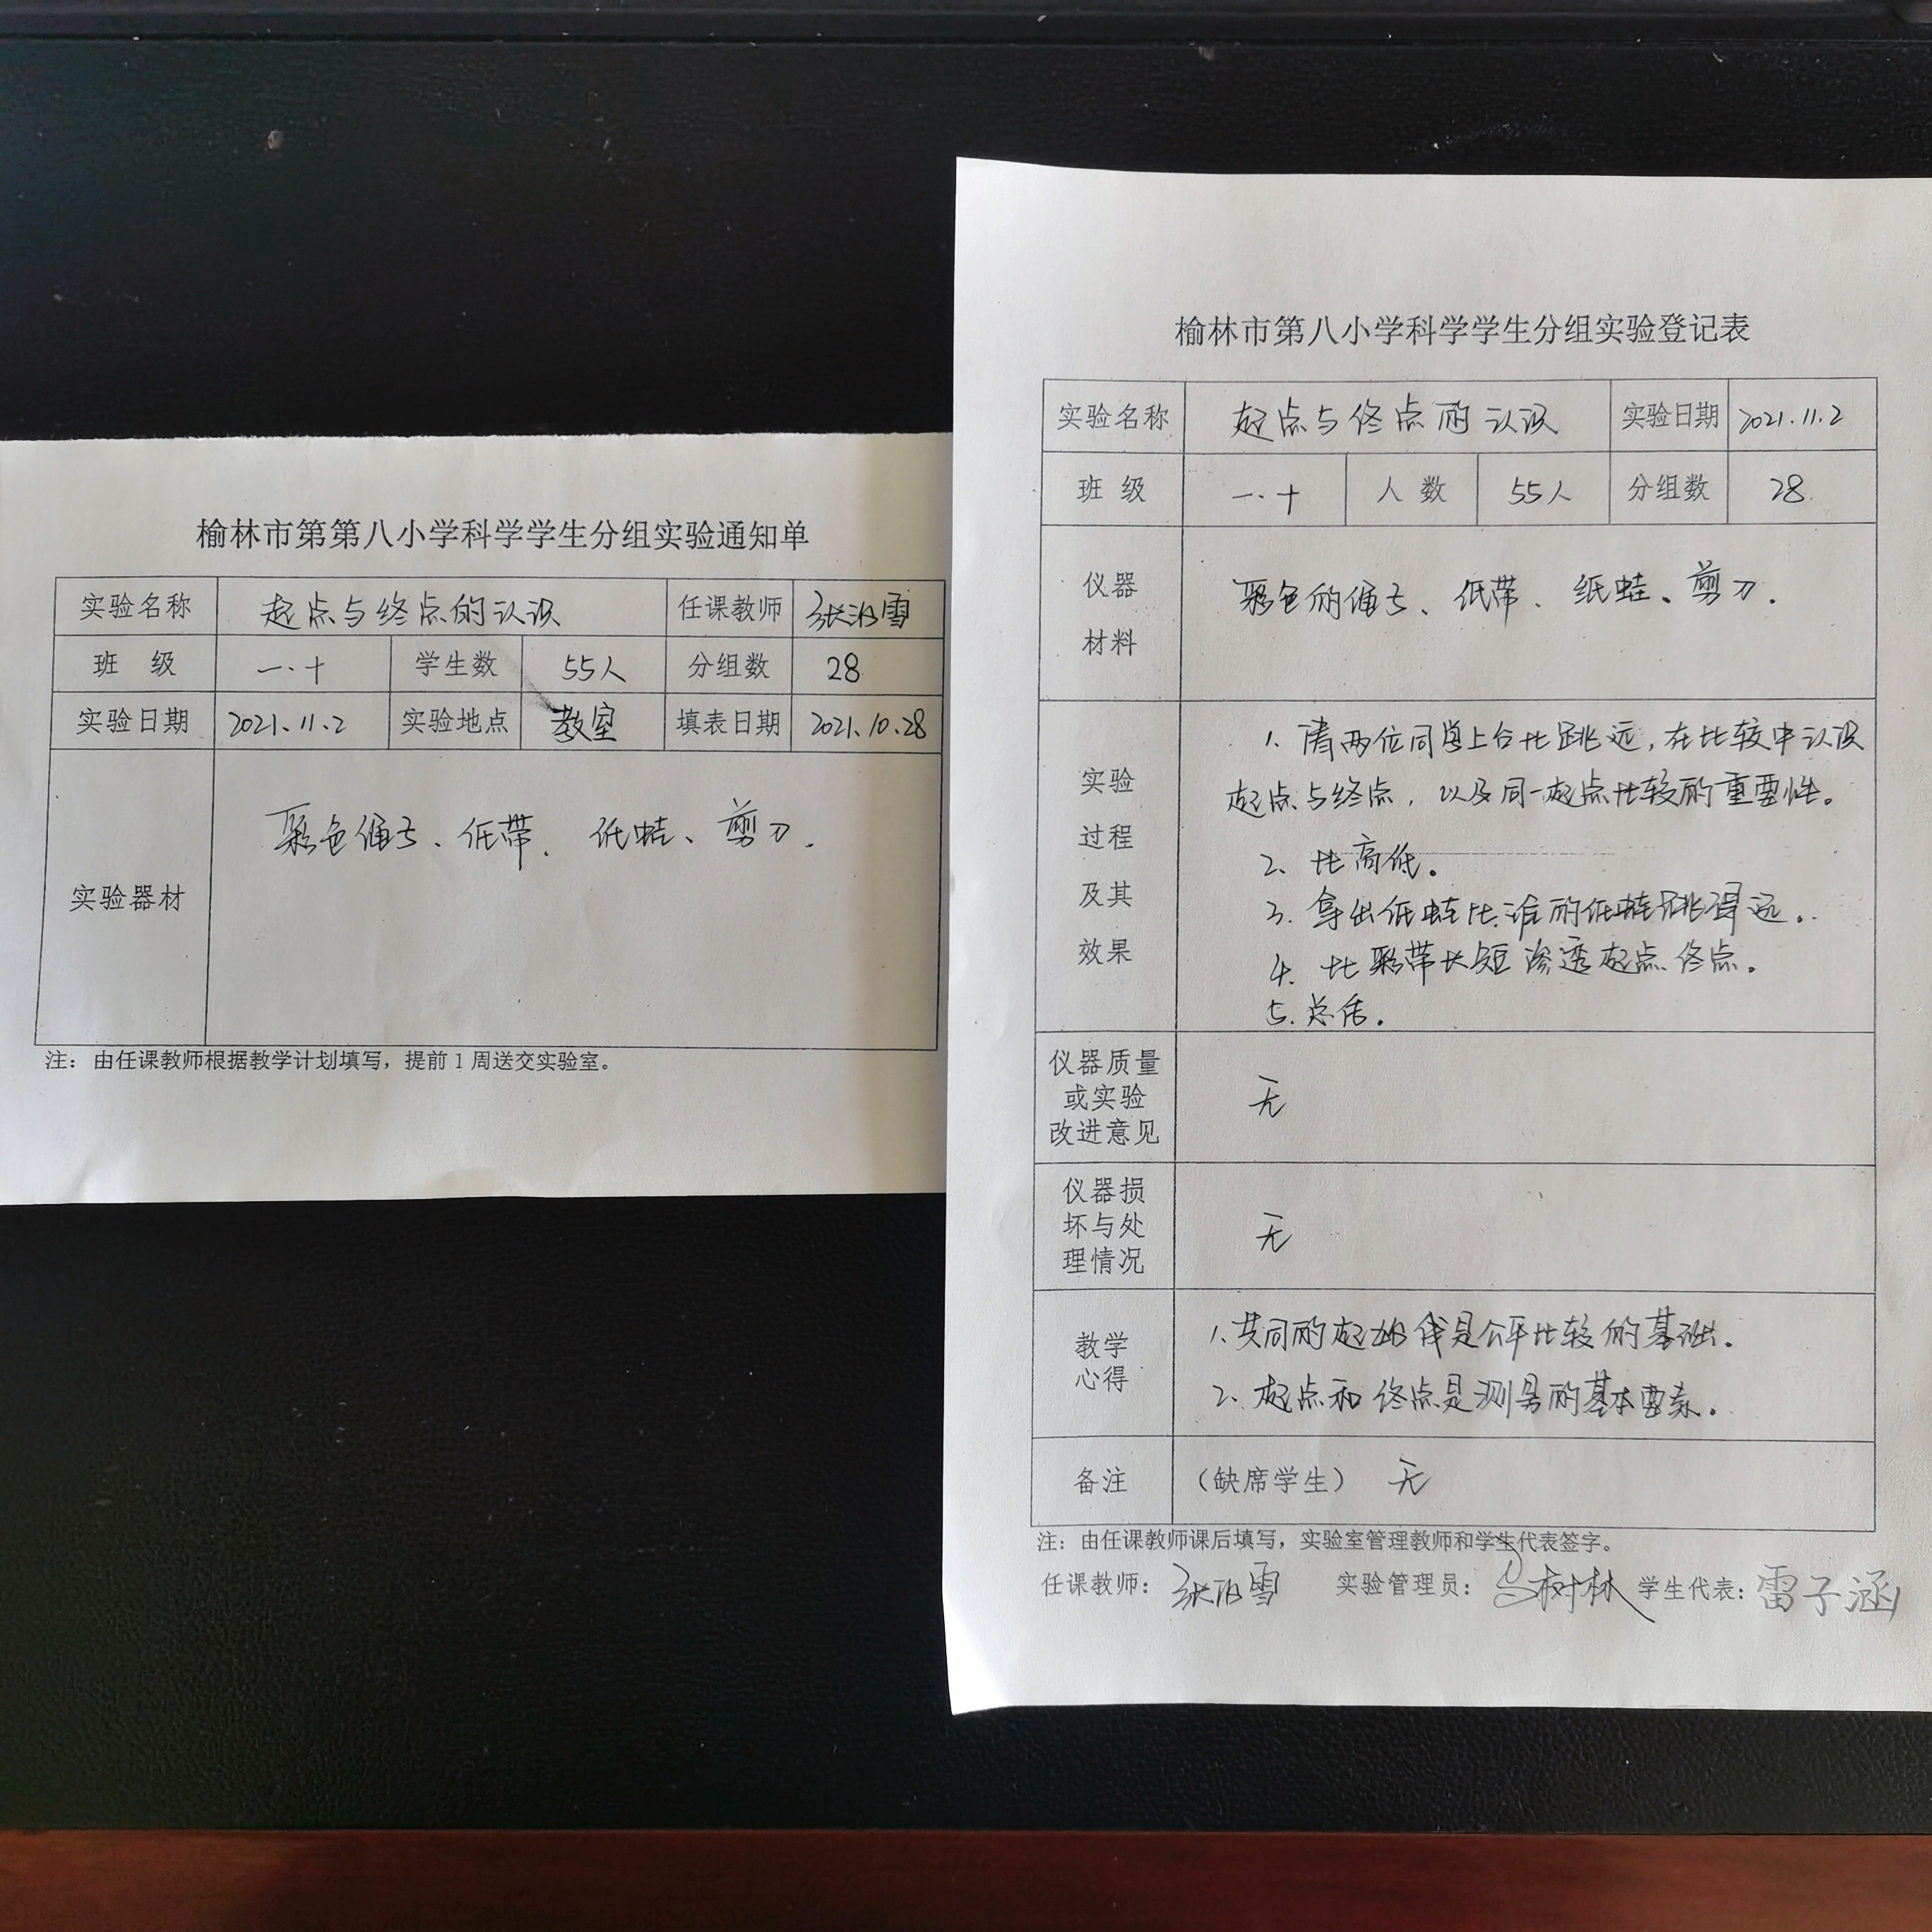 榆林市第第八小学科学学生分组实验通知单
实验名称 起点与终点的认识 任课教师 张汨雪
班 级 一.十 学生数 55人 分组数 28
实验日期 2021.11.2 实验地点 教室 填表日期 2021.10.28
实验器材 彩色绳子、纸带、纸蛙、剪刀.
注：由任课教师根据教学计划填写，提前1周送交实验室。
榆林市第八小学科学学生分组实验登记表
实验名称 起点与终点的认识 实验日期 2021.11.2
班 级 一.十 人 数 55人 分组数 28.
仪器
材料
彩色的绳子、纸带、纸蛙、剪刀.
实验
过程
及其
效果
1. 请两位同学上台比跳远,在比较中认识
起点与终点,以及同一起点比较的重要性。
2、比高低。
3. 拿出纸蛙比谁的纸蛙跳得远。
4. 比彩带长短渗透起点、终点。
5. 总结。
仪器质量
或实验
改进意见
无
仪器损
坏与处
理情况
无
教学
心得
1.共同的起始线是公平比较的基础。
2、起点和终点是测量的基本要素。
备注 （缺席学生） 无
注：由任课教师课后填写，实验室管理教师和学生代表签字。
任课教师：张汨雪 实验管理员：树林 学生代表：雷子涵